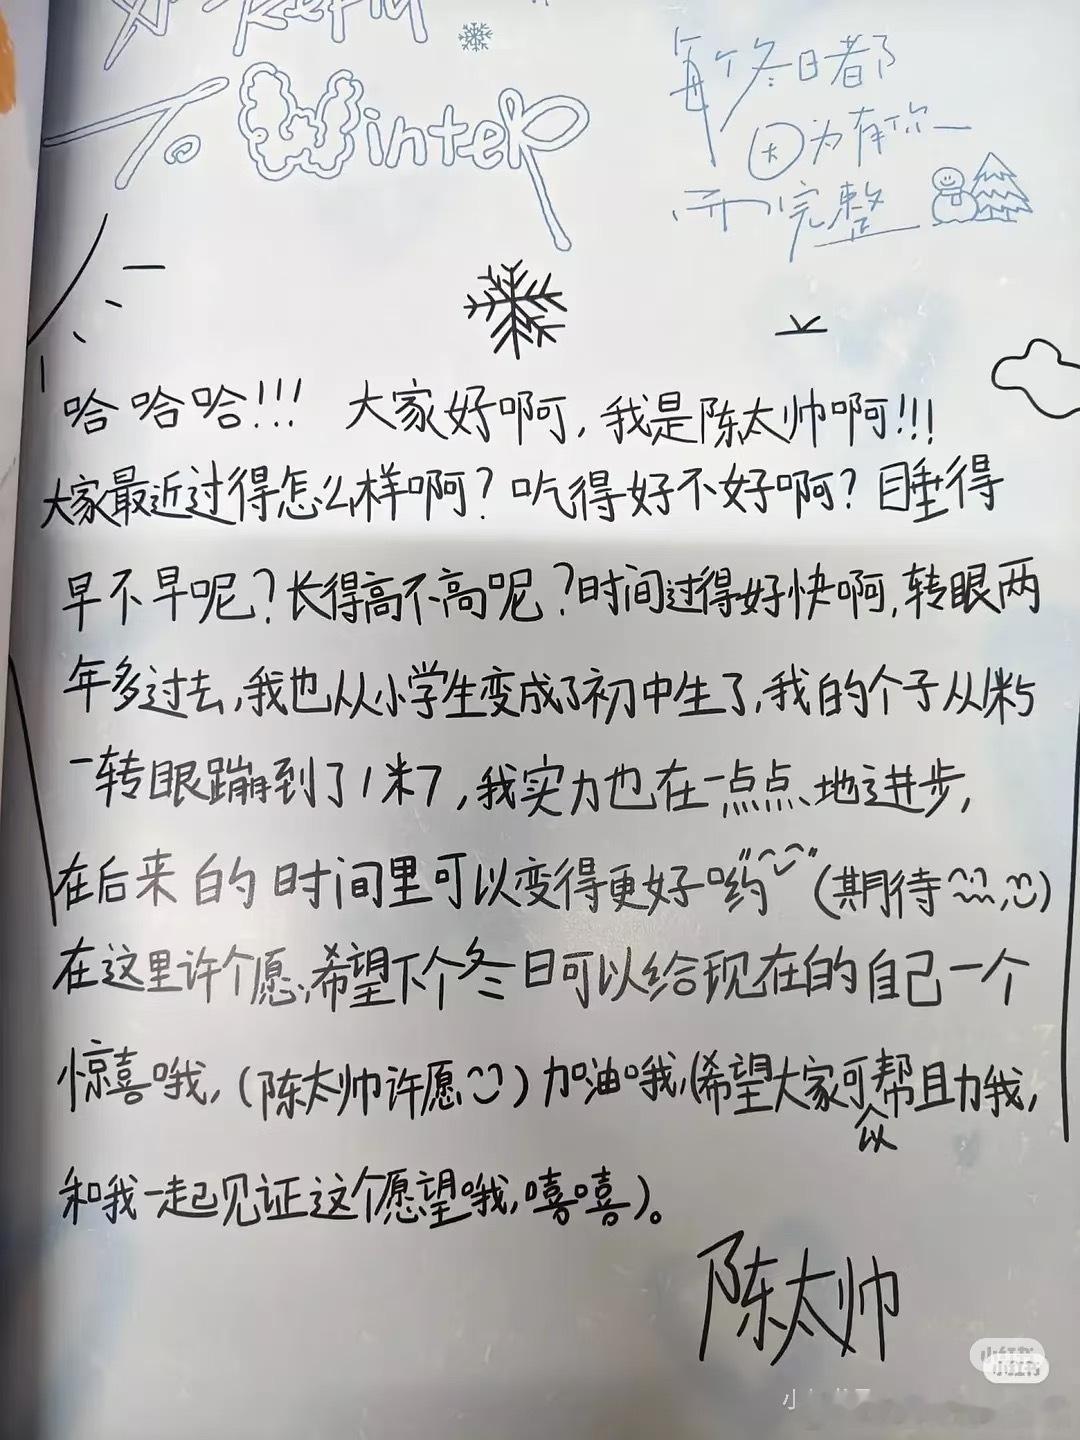 To Winter
每个冬日都
因为有你
而完整
哈哈哈!!! 大家好啊,我是陈太帅啊!!!
大家最近过得怎么样啊?吃得好不好啊?睡得
早不早呢?长得高不高呢?时间过得好快啊,转眼两
年多过去,我也从小学生变成了初中生了,我的个子从1米5
一转眼蹦到了1米7,我实力也在一点点地进步,
在后来的时间里可以变得更好哟(期待)
在这里许个愿,希望下个冬日可以给现在的自己一个
惊喜哦,(陈太帅许愿)加油哦,(希望大家可以帮且力我,
和我一起见证这个愿望哦,嘻嘻)。
陈太帅
小红书
小红书